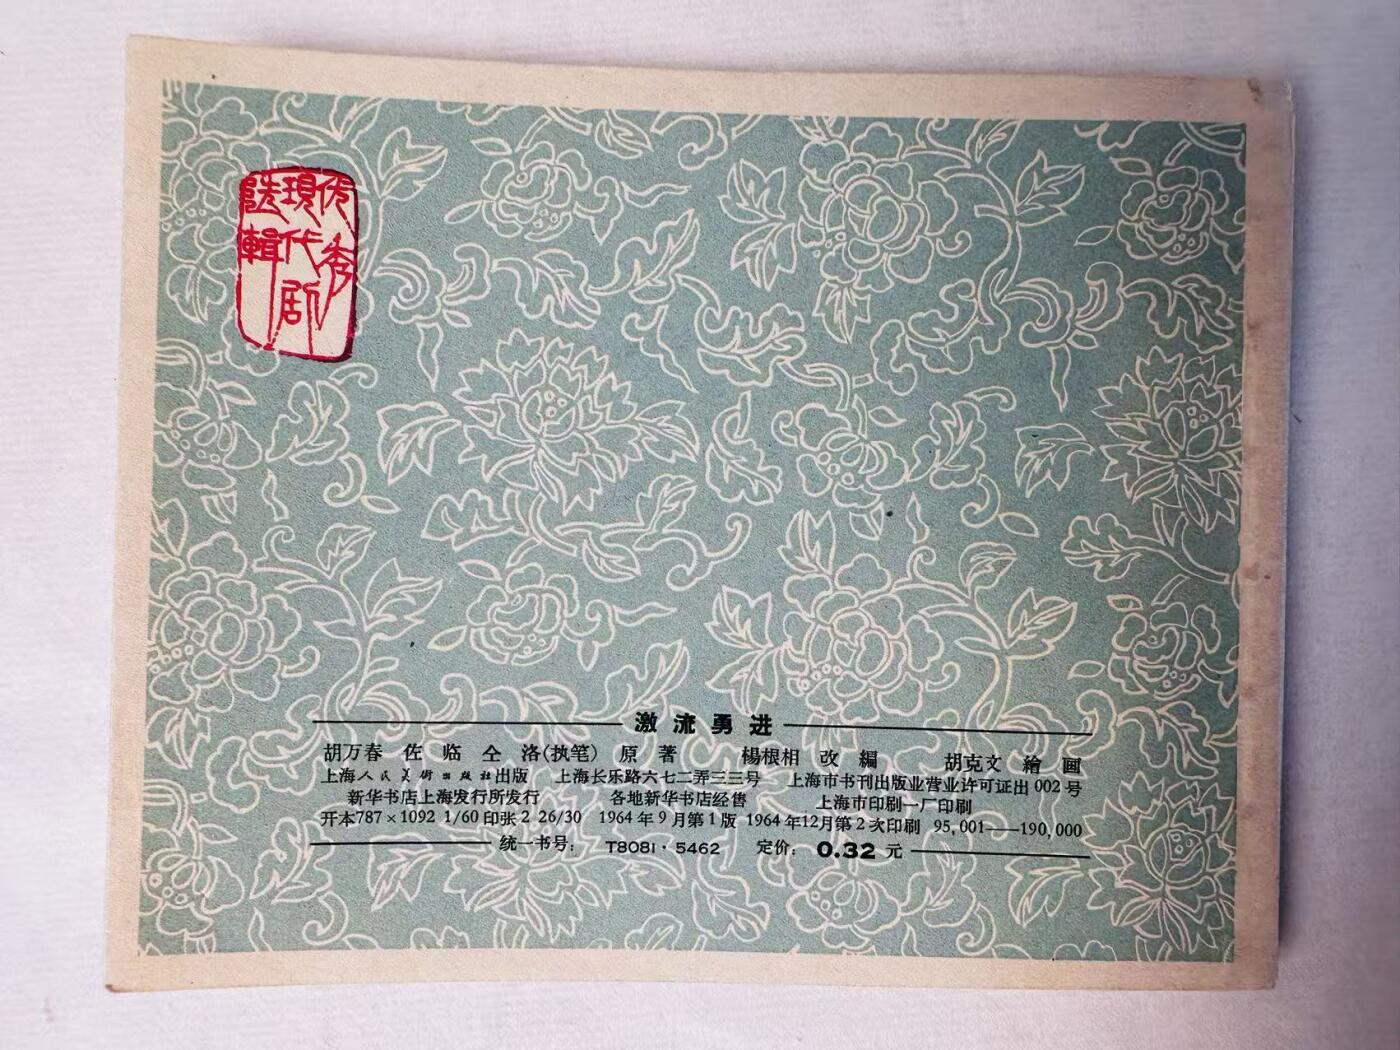 优秀
現代剧
选輯
激流勇进
胡万春 佐临 仝洛(执笔) 原著 楊根相 改編 胡克文 繪画
上海人民美術出版社出版 上海长乐路六七二弄三三号 上海市书刊出版业营业许可证出002号
新华书店上海发行所发行 各地新华书店经售 上海市印刷一厂印刷
开本787×1092 1/60 印张2 26/30 1964年9月第1版 1964年12月第2次印刷 95,001——190,000
统一书号: T8081·5462 定价: 0.32 元